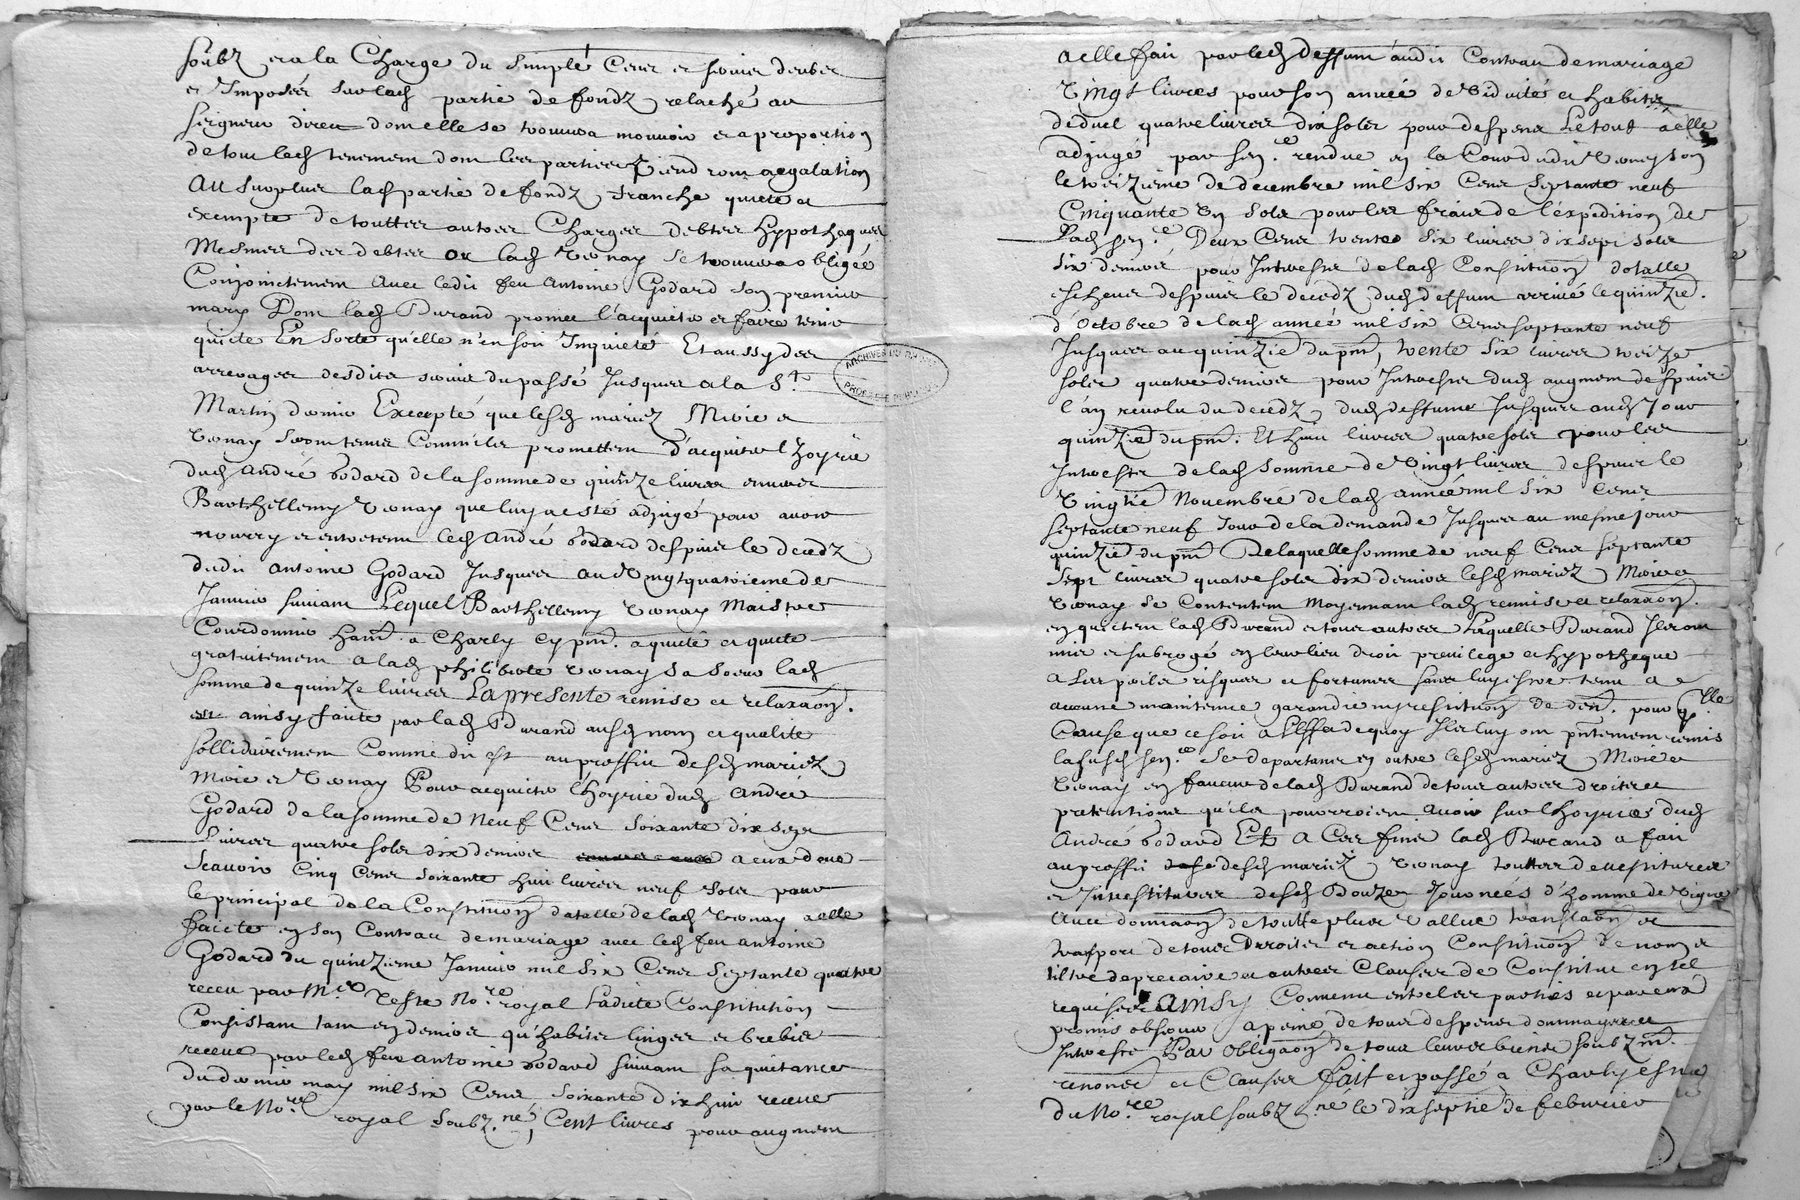 soubz et a la Charge du Simple Cens et servis deubz
et Imposés sur lad partie de fondz relaché au
seigneur direct dont elle se trouvera mouvoir et a proportion
de tout led tenement dont les parties viendront a egalation
Au surplus lad partie de fondz franche quitte et
exempte de touttes autres Charges debtes hypothaques
Mesmes des debtes ou lad Vernay se trouvera obligée
Conjoinctement avec ledit feu Antoine Godard son premier
mary Dont lad Durand promet l'acquiter et faire tenir
quitte En sorte qu'elle n'en soit Inquieté Et aussy des
arrerages desdits servis du passé Jusques a la St
Martin dernier Excepté que lesd mariez Mivie et
Vernay seront tenus Comm'ils promettent d'acquiter l'hoyrie
dud André Godard de la somme de quinze livres envers
Barthellemy Vernay que luy a esté adjugé pour avoir
nourry et entretenu led André Godard despuis le decedz
dudit Antoine Godard Jusques au Vingtquatrieme de
Janvier suivant Lequel Barthellemy Vernay Maistre
Courdonnier hant. a Charly cy pnt. a quitté et quitte
gratuitement a lad philiberte Vernay sa soeur lad
somme de quinze livres La presente remise et relaxaon.
est ainsy faite par lad Durand ausd nom et qualité
sollidairement Comme dit est au proffit desd mariez
Mivie et Vernay Pour acquiter l'hoyrie dud André
Godard de la somme de Neuf Cens soixante dix sept
Livres quatre sols dix deniers a eux deue
Scavoir Cinq Cens soixante huit livres neuf sols pour
le principal de la Constituon dotalle de lad Vernay a elle
faicte en son Contrau de mariage avec led feu Antoine
Godard du quinzieme Janvier mil six Cens septante quatre
receu par Me Teste No.re royal Ladite Constitution
Consistant tant en deniers qu'habits linges et brebis
receue par led feu Antoine Godard suivant sa quittance
du dernier may mil six Cens soixante dix huit receue
par le No.re royal soubz.né, Cent livres pour augment
a elle fait par led deffunt audit Contrau de mariage
Vingt livres pour son année de Viduité et habits
de duel quatre livres dix sols pour despens Le tout a elle
adjugé par sen.ce rendue en la Cour dudit Verneyson
le treizieme de decembre mil six Cens septante neuf
Cinquante Un sols pour les frais de l'expedition de
lad sen.ce Deux Cens trente six livres dix sept sols
six deniers pour Interestz de lad Constituon dotalle
escheus despuis le decedz dud deffunt arrivé le quinzie.
d'Octobre de lad année mil six Cens septante neuf
Jusques au quinzie du pnt, trente six livres treize
sols quatre deniers pour Interestz dud augment despuis
l'an revolu du decedz dud deffunt Jusques aud Jour
quinzie du pnt. Et huit livres quatre sols pour les
Interestz de lad somme de Vingt livres despuis le
Vingtie Novembre de lad année mil six Cens
septante neuf Jour de la demande Jusques au mesme jour
quinzie du pnt De laquelle somme de neuf Cens septante
Sept livres quatre sols dix deniers lesd mariez Mivie
Vernay se Contentent Moyennant lad remise et relaxaon.
en quittent lad Durand et tous autres Laquelle Durand Ils ont
mis et subrogé en leur lieu droit privilege et hypotheque
a ses perils risques et fortunes sans luy estre tenu a
aucune maintenue garandie ny restituon de den. pour qlle
Cause que ce soit A l'effet de quoy Ils luy ont pntement remis
la susd sen.ce Se departans en outre lesd mariez Mivie
Vernay en faveur de lad Durand de tous autres droits et
pretentions qu'ils pourroient avoir sur l'hoyrie dud
André Godard Et A Ces fins lad Durand a fait
au proffit desd mariez Vernay touttes devestitures
et Investitures desd Douze Journées d'homme de Vigne
avec donnaon de toutte plus Vallue translaon et
transport de tous Droits et action Constituon de nom et
tiltre de precaire et autres Clauses de Constitut en tel
requises Ainsy Convenu entre les parties et par eux
promis observer a peine de tous despens dommages et
Interestz Par Obligaon de tous leurs biens soubzm.
renonce et Clauses fait et passé a Charly estude
du No.re royal soubz.né le dix septie de febvrier
ARCHIVES DU RHONE